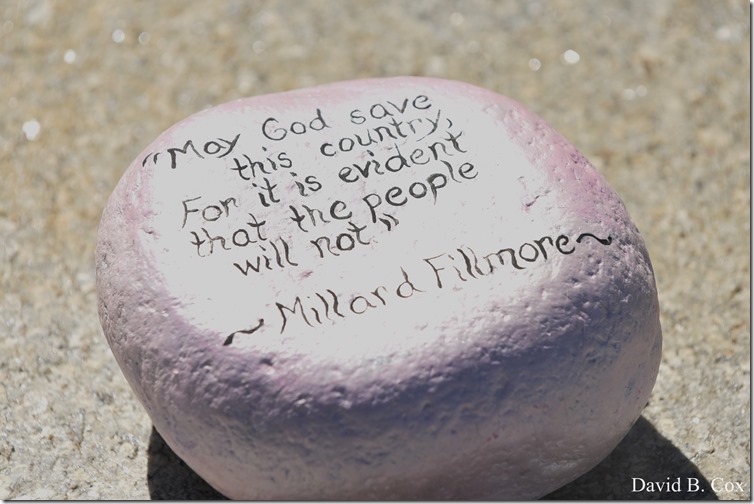 "May God save
this country,
For it is evident
that the people
will not"
~Millard Fillmore~
David B. Cox